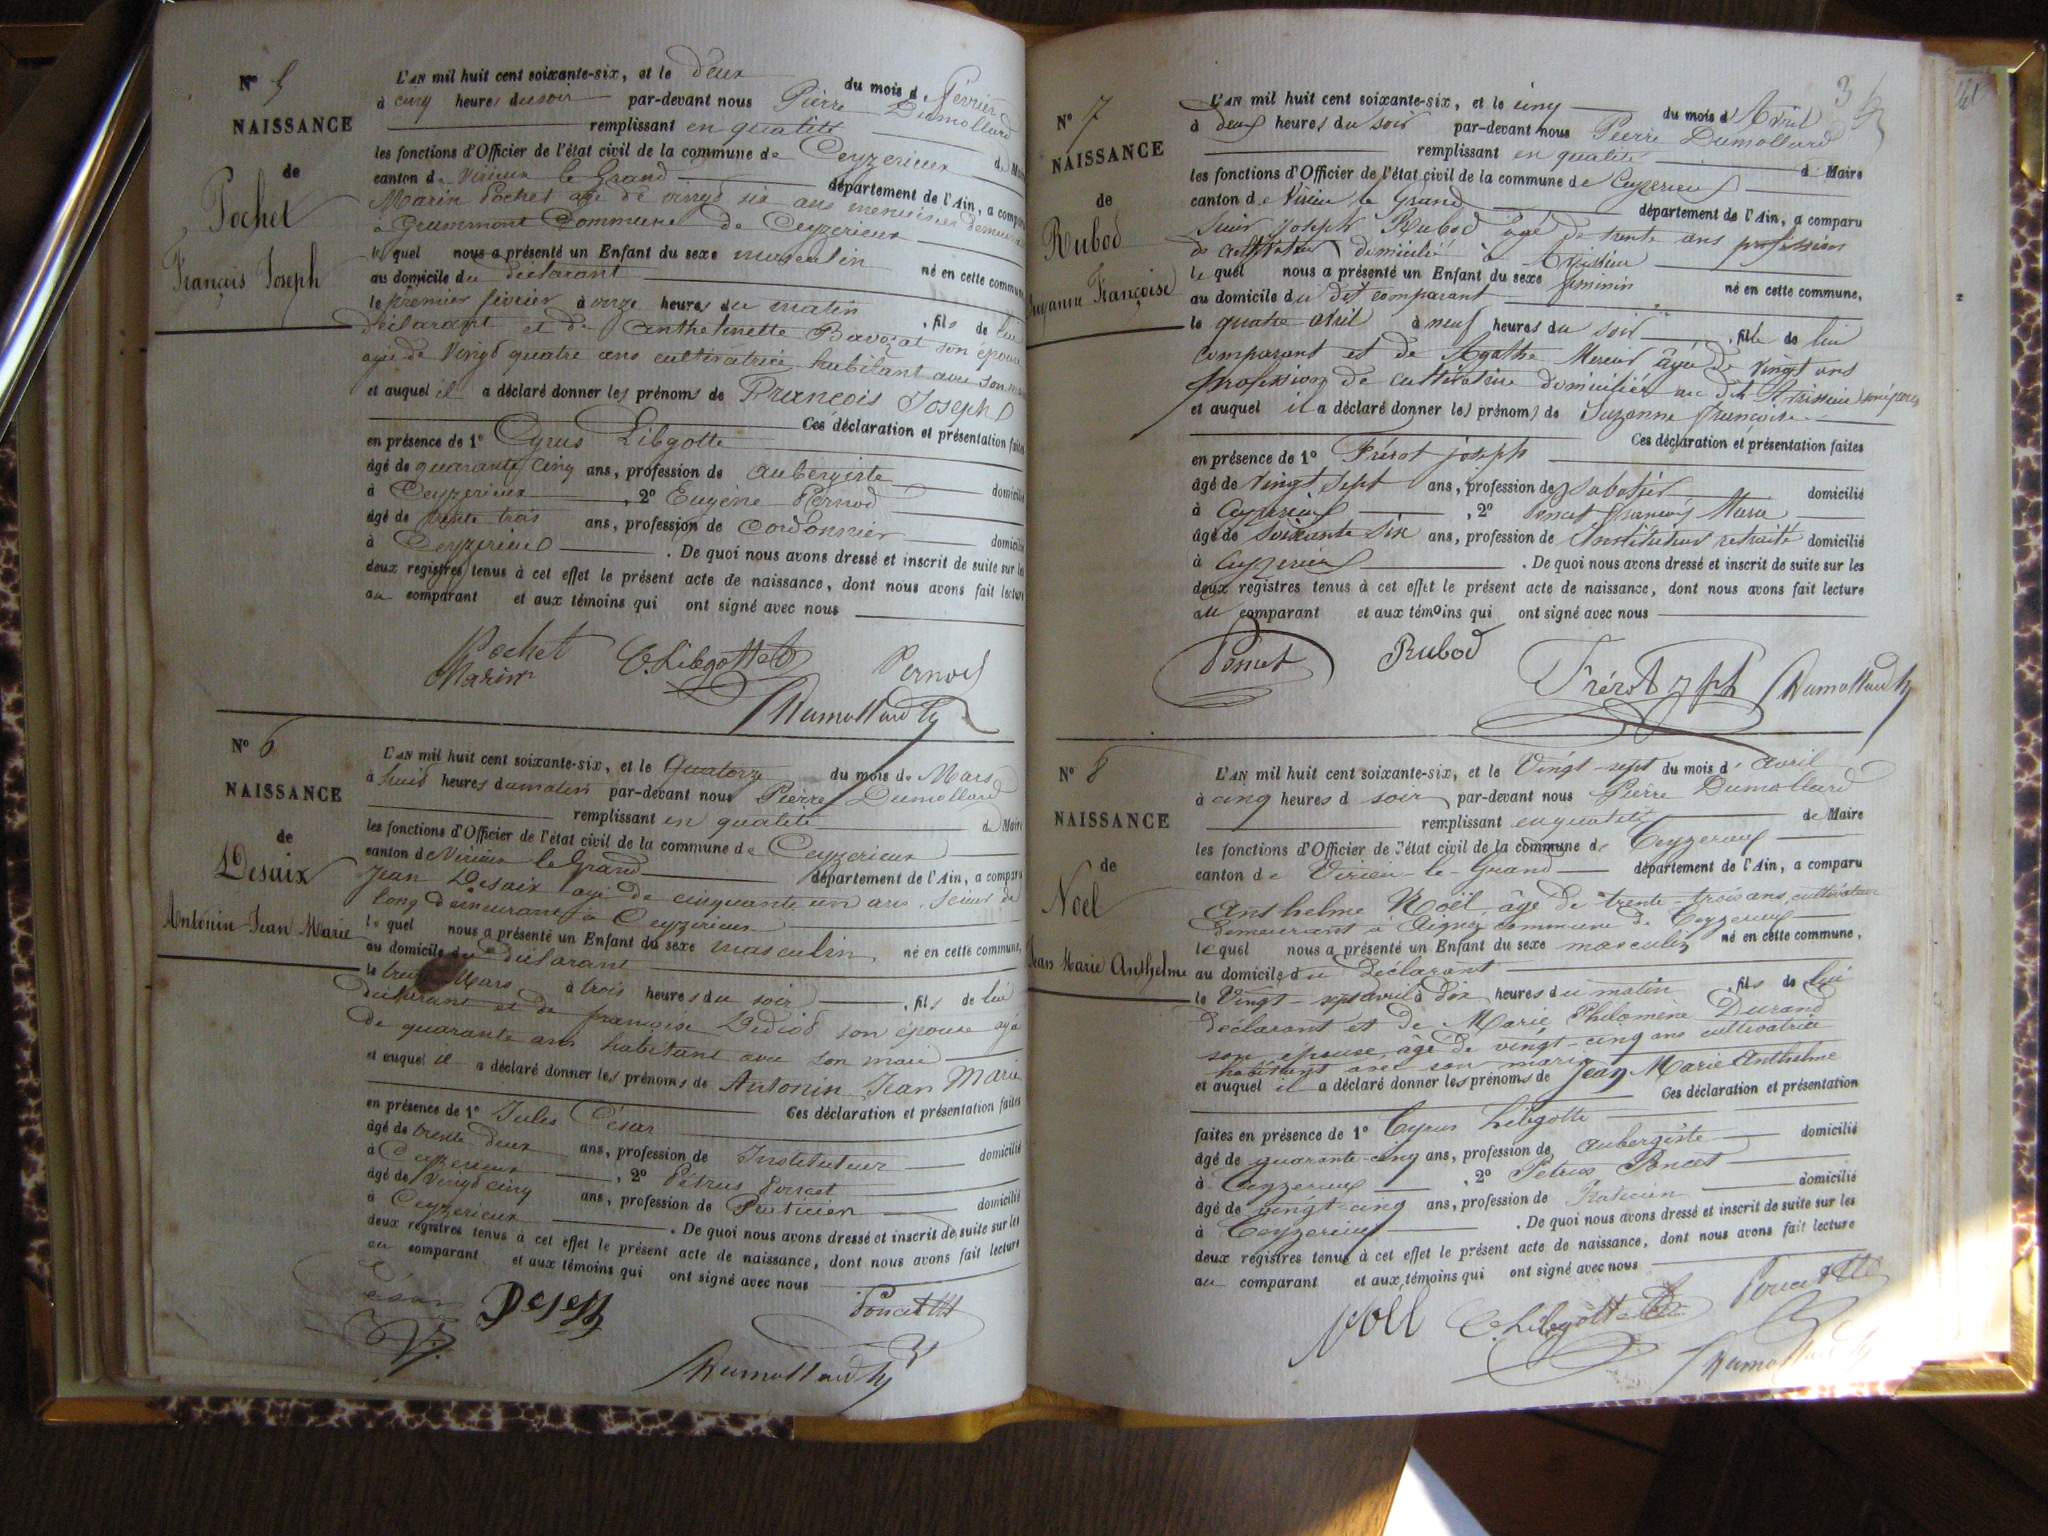 N° 5
NAISSANCE
de
Pochet
François Joseph
L'AN mil huit cent soixante-six, et le deux du mois de Février
à cinq heures du soir par-devant nous Pierre Dumollard
remplissant en qualité de Maire
les fonctions d'Officier de l'état civil de la commune de Ceyzerieux
canton de Virieux le Grand département de l'Ain, a comparu
Marin Pochet agé de vingt six ans menuisier
à Grammont Commune de Ceyzerieux
lequel nous a présenté un Enfant du sexe masculin né en cette commune
au domicile du déclarant
le premier février à onze heures du matin, fils de lui
déclarant et de Anthelmette Bavozat son épouse
agée de Vingt quatre ans cultivatrice habitant avec son
et auquel il a déclaré donner les prénoms de François Joseph
Ces déclaration et présentation faites
en présence de 1° Cyrus Libgotte
âgé de quarante cinq ans, profession de aubergiste domicilié
à Ceyzerieux, 2° Eugène Pernod
âgé de trente trois ans, profession de Cordonnier domicilié
à Ceyzerieux. De quoi nous avons dressé et inscrit de suite sur les
deux registres tenus à cet effet le présent acte de naissance, dont nous avons fait lecture
au comparant et aux témoins qui ont signé avec nous
Pochet Marin C. Libgotte Pernod
Dumollard
N° 6
NAISSANCE
de
Desaix
Antonin Jean Marie
L'AN mil huit cent soixante-six, et le Quatorze du mois de Mars
à huit heures du matin par-devant nous Pierre Dumollard
remplissant en qualité de Maire
les fonctions d'Officier de l'état civil de la commune de Ceyzerieux
canton de Virieux le Grand département de l'Ain, a comparu
Jean Desaix agé de cinquante un ans, scieur de
long demeurant à Ceyzerieux
lequel nous a présenté un Enfant du sexe masculin, né en cette commune,
au domicile du déclarant
le treize Mars à trois heures du soir, fils de lui
déclarant et de françoise son épouse agée
de quarante ans habitant avec son mari
et auquel il a déclaré donner les prénoms de Antonin Jean Marie
Ces déclaration et présentation faites
en présence de 1° Jules César
âgé de trente deux ans, profession de Instituteur domicilié
à Ceyzerieux, 2° Pétrus Poncet
âgé de Vingt cinq ans, profession de Praticien domicilié
à Ceyzerieux. De quoi nous avons dressé et inscrit de suite sur les
deux registres tenus à cet effet le présent acte de naissance, dont nous avons fait lecture
au comparant et aux témoins qui ont signé avec nous
César Poncet
Dumollard
N° 7
NAISSANCE
de
Rubod
Suzanne Françoise
L'AN mil huit cent soixante-six, et le cinq du mois d'Avril
à deux heures du soir par-devant nous Pierre Dumollard
remplissant en qualité de Maire
les fonctions d'Officier de l'état civil de la commune de Ceyzerieu
canton de Virieu le Grand département de l'Ain, a comparu
Sieur Joseph Rubod âgé de trente ans profession
de cultivateur domicilié à Avrissieu
lequel nous a présenté un Enfant du sexe féminin né en cette commune,
au domicile du dit comparant
le quatre avril à neuf heures du soir, fille de lui
comparant et de Agathe Mercier âgée de vingt ans
profession de cultivateur domiciliée au dit Avrissieu son épouse
et auquel il a déclaré donner les prénoms de Suzanne françoise
Ces déclaration et présentation faites
en présence de 1° Frérot joseph
âgé de vingt sept ans, profession de sabotier domicilié
à Ceyzerieu, 2° Poncet François Marie
âgé de soixante six ans, profession de Instituteur retraité domicilié
à Ceyzerieu. De quoi nous avons dressé et inscrit de suite sur les
deux registres tenus à cet effet le présent acte de naissance, dont nous avons fait lecture
au comparant et aux témoins qui ont signé avec nous
Poncet Rubod Frérot Jph Dumollard
N° 8
NAISSANCE
de
Noël
Jean Marie Anthelme
L'AN mil huit cent soixante-six, et le Vingt-sept du mois d'avril
à cinq heures d soir par-devant nous Pierre Dumollard
remplissant en qualité de Maire
les fonctions d'Officier de l'état civil de la commune de Ceyzerieux
canton de Virieu-le-Grand département de l'Ain, a comparu
Anthelme Noël âgé de trente-trois ans, cultivateur
demeurant à Aignoz commune de Ceyzerieux
lequel nous a présenté un Enfant du sexe masculin né en cette commune,
au domicile du déclarant
le Vingt-sept avril à dix heures du matin, fils de lui
déclarant et de Marie Philomène Durand
son épouse, âgé de vingt-cinq ans cultivatrice
habitant avec son mari
et auquel il a déclaré donner les prénoms de Jean Marie Anthelme
Ces déclaration et présentation
faites en présence de 1° Cyrus Libgotte
âgé de quarante-cinq ans, profession de aubergiste domicilié
à Ceyzerieux, 2° Pétrus Poncet
âgé de vingt-cinq ans, profession de Praticien domicilié
à Ceyzerieux. De quoi nous avons dressé et inscrit de suite sur les
deux registres tenus à cet effet le présent acte de naissance, dont nous avons fait lecture
au comparant et aux témoins qui ont signé avec nous
Noël C. Libgotte Poncet
Dumollard